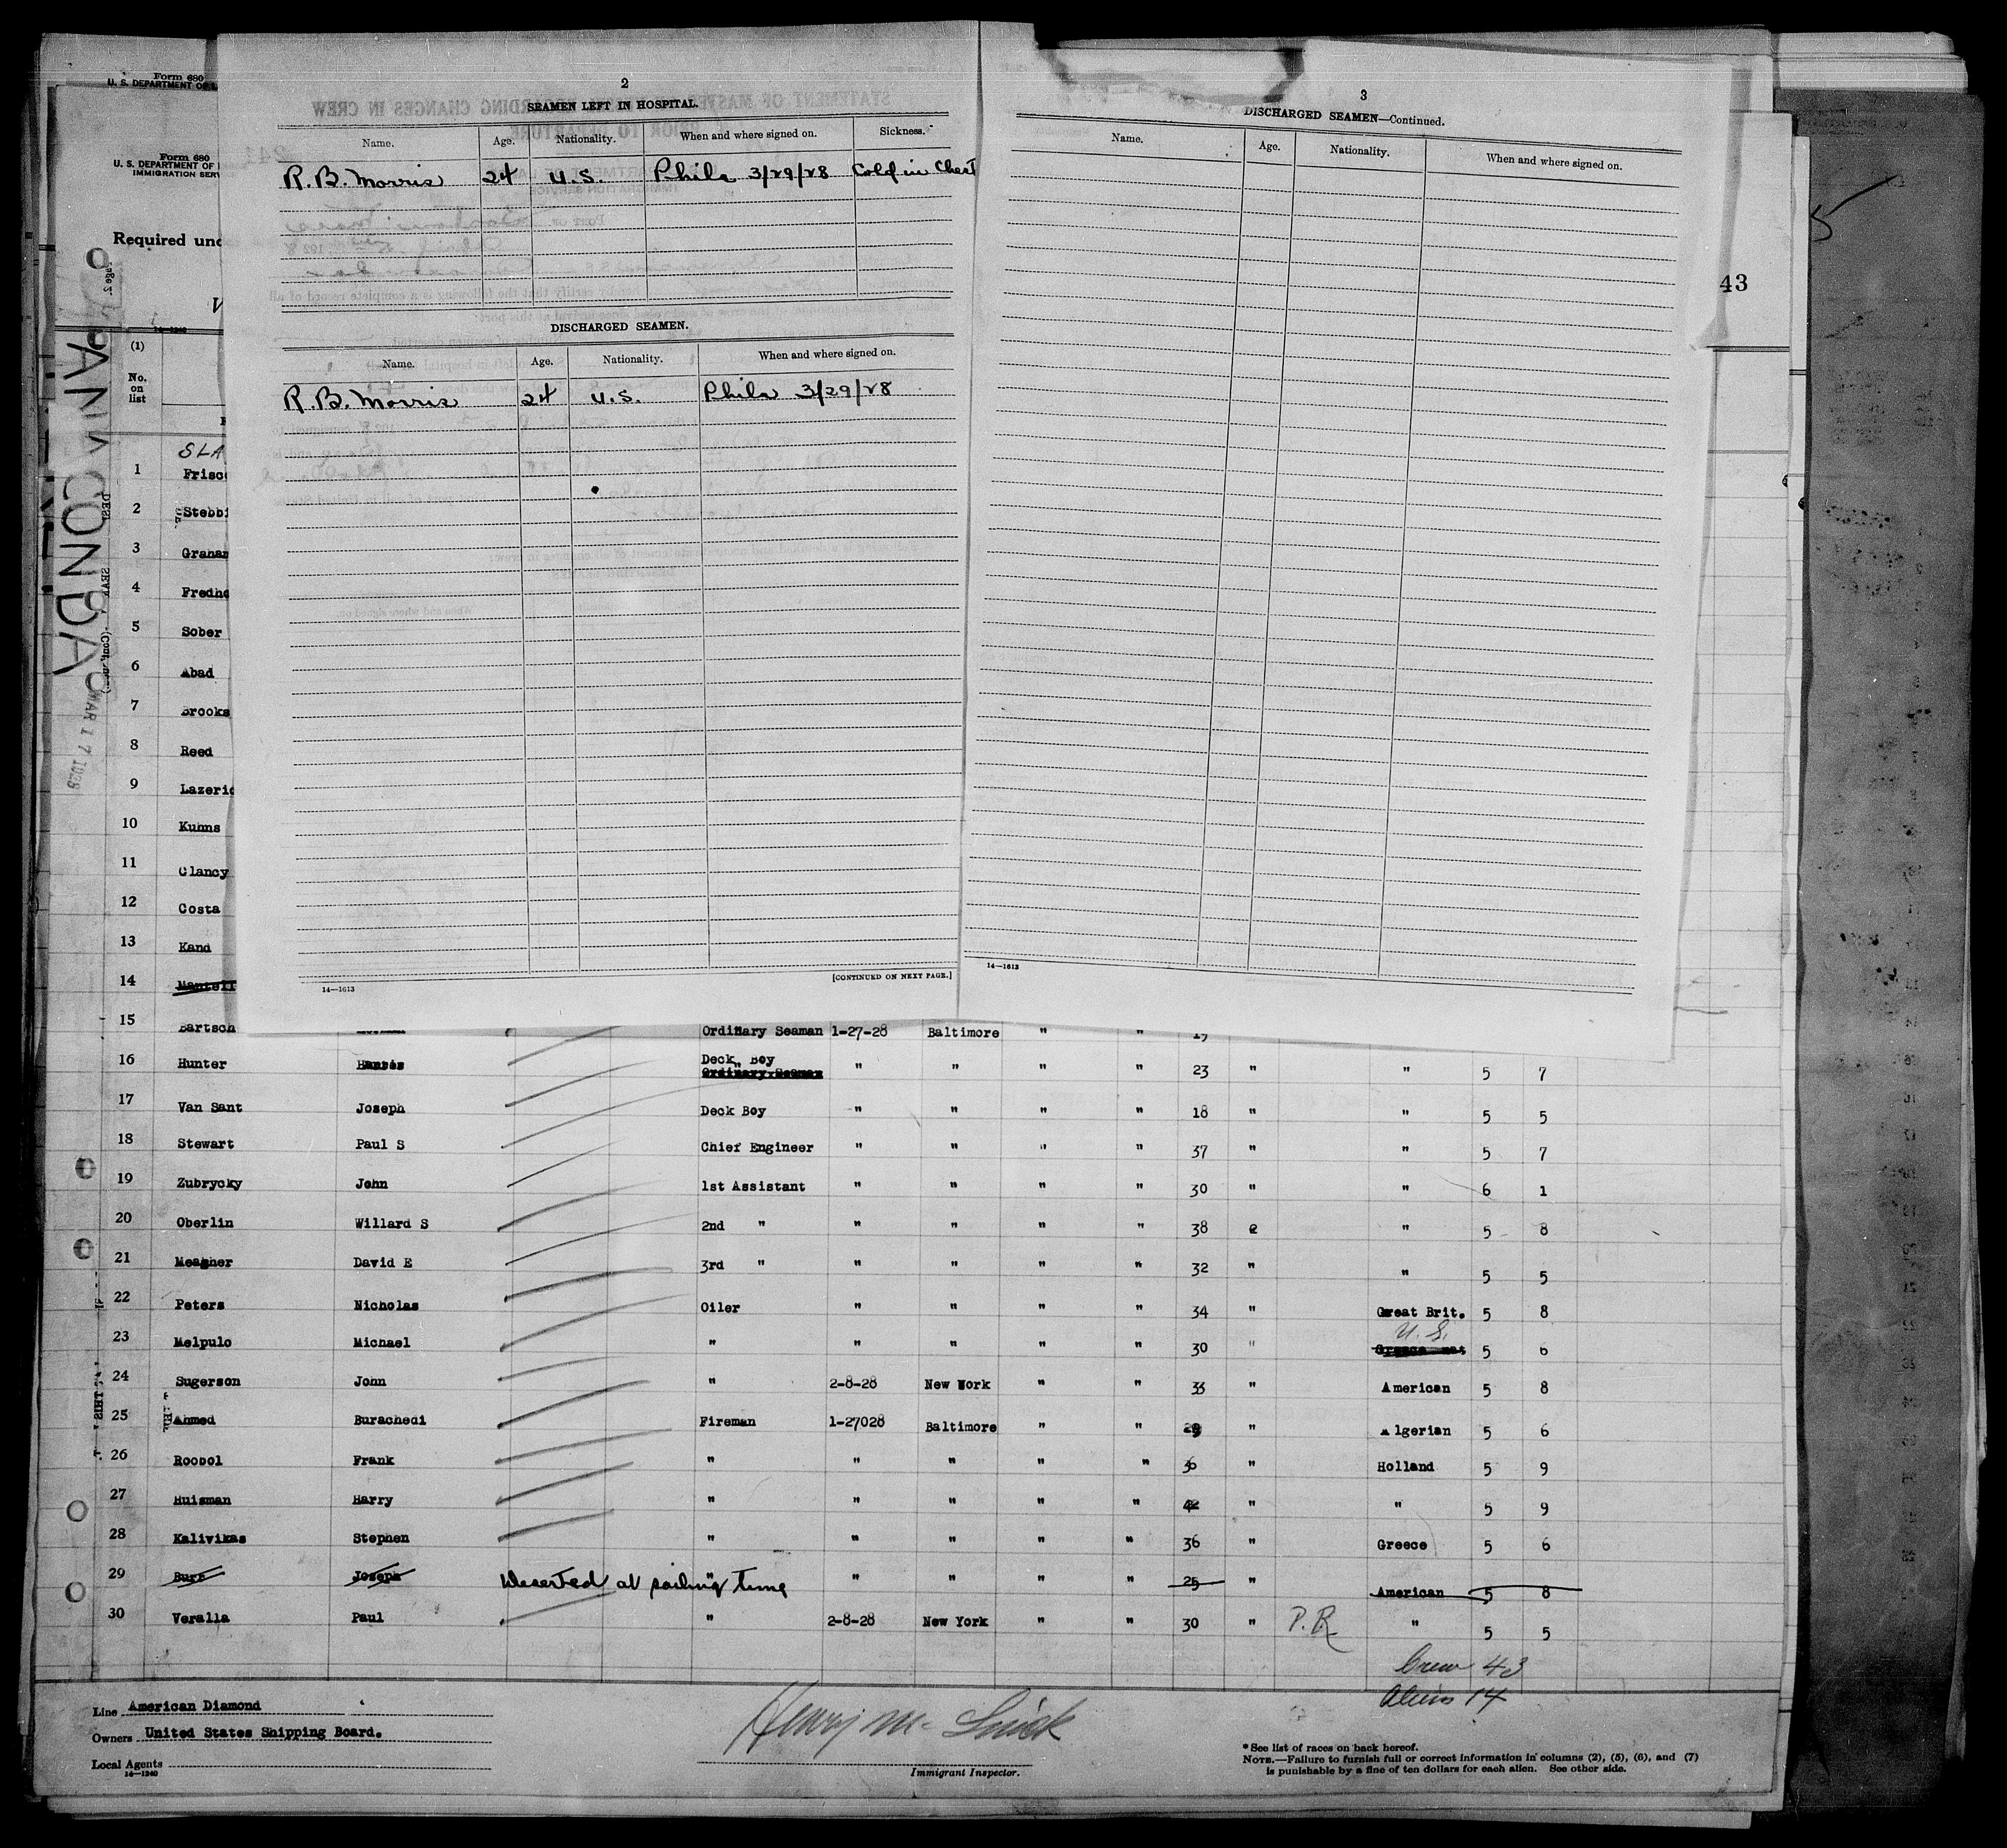 Form 680
U. S. DEPARTMENT OF
Form 680
U. S. DEPARTMENT OF
IMMIGRATION SERV
Required und
ANACONDA
MAR 17 1928
(1)
No.
on
list
2
SEAMEN LEFT IN HOSPITAL.
Name. Age. Nationality. When and where signed on. Sickness.
R. B. Morris 24 U.S. Phila 3/29/28 Cold in Chest
DISCHARGED SEAMEN.
Name. Age. Nationality. When and where signed on.
R. B. Morris 24 U.S. Phila 3/29/28
[CONTINUED ON NEXT PAGE.]
14—1613
3
DISCHARGED SEAMEN—Continued.
Name. Age. Nationality. When and where signed on.
14—1613
43
SLA
1 Frisco
2 Stebbi
3 Graham
4 Fredho
5 Sober
6 Abad
7 Brooks
8 Reed
9 Lazeric
10 Kuhns
11 Clancy
12 Costa
13 Kand
14 Mantell
15 Bartsch Ordinary Seaman 1-27-28 Baltimore " " 19
16 Hunter Deck Boy
Ordinary Seaman " " " " 23 " " 5 7
17 Van Sant Joseph Deck Boy " " " " 18 " " 5 5
18 Stewart Paul S Chief Engineer " " " " 37 " " 5 7
19 Zubrycky John 1st Assistant " " " " 30 " " 6 1
20 Oberlin Willard S 2nd " " " " " 38 " 5 8
21 Meagher David E 3rd " " " " " 32 " " 5 5
22 Peters Nicholas Oiler " " " " 34 " Great Brit. 5 8
U. S.
23 Melpulo Michael " " " " " 30 " Greece 5 6
24 Sugerson John " 2-8-28 New Work " " 33 " American 5 8
25 Ahmed Burachedi Fireman 1-27028 Baltimore " " 29 " Algerian 5 6
26 Roobol Frank " " " " " 36 " Holland 5 9
27 Huisman Harry " " " " " 42 " " 5 9
28 Kalivikas Stephen " " " " " 36 " Greece 5 6
29 Burr Joseph Deserted at sailing time " " " " " 25 " American 5 8
30 Veralla Paul " 2-8-28 New York " " 30 " P.R " 5 5
Crew 43
Aliens 14
Line American Diamond
Owners United States Shipping Board.
Local Agents
14—1240
Immigrant Inspector.
* See list of races on back hereof.
NOTE.—Failure to furnish full or correct information in columns (2), (5), (6), and (7)
is punishable by a fine of ten dollars for each alien. See other side.